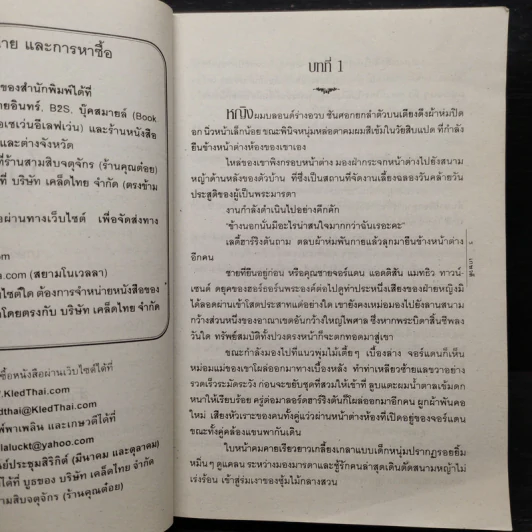 าย และการหาซื้อ
ของสำนักพิมพ์ได้ที่
ายอินทร์, B2S, บุ๊คสมายล์ (Book
อเซเว่นอีเลฟเว่น) และร้านหนังสือ
และต่างจังหวัด
ที่ร้านสามสิบจตุจักร (ร้านคุณต๋อย)
ที่ บริษัท เคล็ดไทย จำกัด (ตรงข้าม
อผ่านทางเว็บไซต์ เพื่อจัดส่งทาง
a.com (สยามโนเวลลา)
ไซต์ใด ต้องการจำหน่ายหนังสือของ
อโดยตรงกับ บริษัท เคล็ดไทย จำกัด
ซื้อหนังสือผ่านเว็บไซต์ได้ที่
.KledThai.com
dthai@KledThai.com
พ์พาเพลิน และเกษวดีได้ที่
laluckt@yahoo.com
นย์ประชุมสิริกิติ์ (มีนาคม และตุลาคม)
ได้ที่ บูธของ บริษัท เคล็ดไทย จำกัด
ามสิบจตุจักร (ร้านคุณต๋อย)
บทที่ 1
หญิงผมบลอนด์ร่างอวบ ชันศอกยกลำตัวบนเตียงดึงผ้าห่มปิด
อก นิ่วหน้าเล็กน้อย ขณะพินิจหนุ่มหล่อตาคมผมสีเข้มในวัยสิบแปด ที่กำลัง
ยืนข้างหน้าต่างห้องของเขาเอง
ไหล่ของเขาพิงกรอบหน้าต่าง มองฝ่ากระจกหน้าต่างไปยังสนาม
หญ้าด้านหลังของตัวบ้าน ที่ซึ่งเป็นสถานที่จัดงานเลี้ยงฉลองวันคล้ายวัน
ประสูติของผู้เป็นพระมารดา
งานกำลังดำเนินไปอย่างคึกคัก
"ข้างนอกนั่นมีอะไรน่าสนใจมากกว่าฉันเรอะคะ"
เลดี้ฮาร์ริงตันถาม ตลบผ้าห่มพันกายแล้วลุกมายืนข้างหน้าต่าง
อีกคน
ชายที่ยืนอยู่ก่อน หรือคุณชายจอร์แดน แอดดิสัน แมทธิว ทาวน์-
เซนด์ ดยุคของเฮอร์ธอร์นพระองค์ต่อไปดูท่าประหนึ่งเสียงของฝ่ายหญิงมิ
ได้ลอดผ่านเข้าโสตประสาทแต่อย่างใด เขายังคงเหม่อมองไปยังลานสนาม
กว้างส่วนหนึ่งของอาณาเขตอันกว้างใหญ่ไพศาล ซึ่งหากพระบิดาสิ้นชีพลง
วันใด ทรัพย์สมบัติทั้งปวงตรงหน้าก็จะตกทอดมาสู่เขา
ขณะกำลังมองไปที่แนวพุ่มไม้เตี้ยๆ เบื้องล่าง จอร์แดนก็เห็น
หม่อมแม่ของเขาโผล่ออกมาทางเบื้องหลัง ทำท่าเหลียวซ้ายแลขวาอย่าง
รวดเร็วระมัดระวัง ก่อนจะขยับชุดที่สวมให้เข้าที่ ลูบแตะผมน้ำตาลเข้มดก
หนาให้เรียบร้อย ครู่ต่อมาลอร์ดฮาร์ริงตันก็โผล่ออกมาอีกคน ผูกผ้าพันคอ
ใหม่ เสียงหัวเราะของคนทั้งคู่แว่วผ่านหน้าต่างห้องที่เปิดอยู่ของจอร์แดน
ขณะทั้งคู่คล้องแขนพากันเดิน
ใบหน้าคมคายเรียวยาวเกลี้ยงเกลาแบบเด็กหนุ่มปรากฏรอยยิ้ม
หมิ่นๆ ดูแคลน ระหว่างมองมารดาและชู้รักคนล่าสุดเดินตัดสนามหญ้าไม่
เร่งร้อน เข้าสู่ร่มเงาของซุ้มไม้กลางสวน